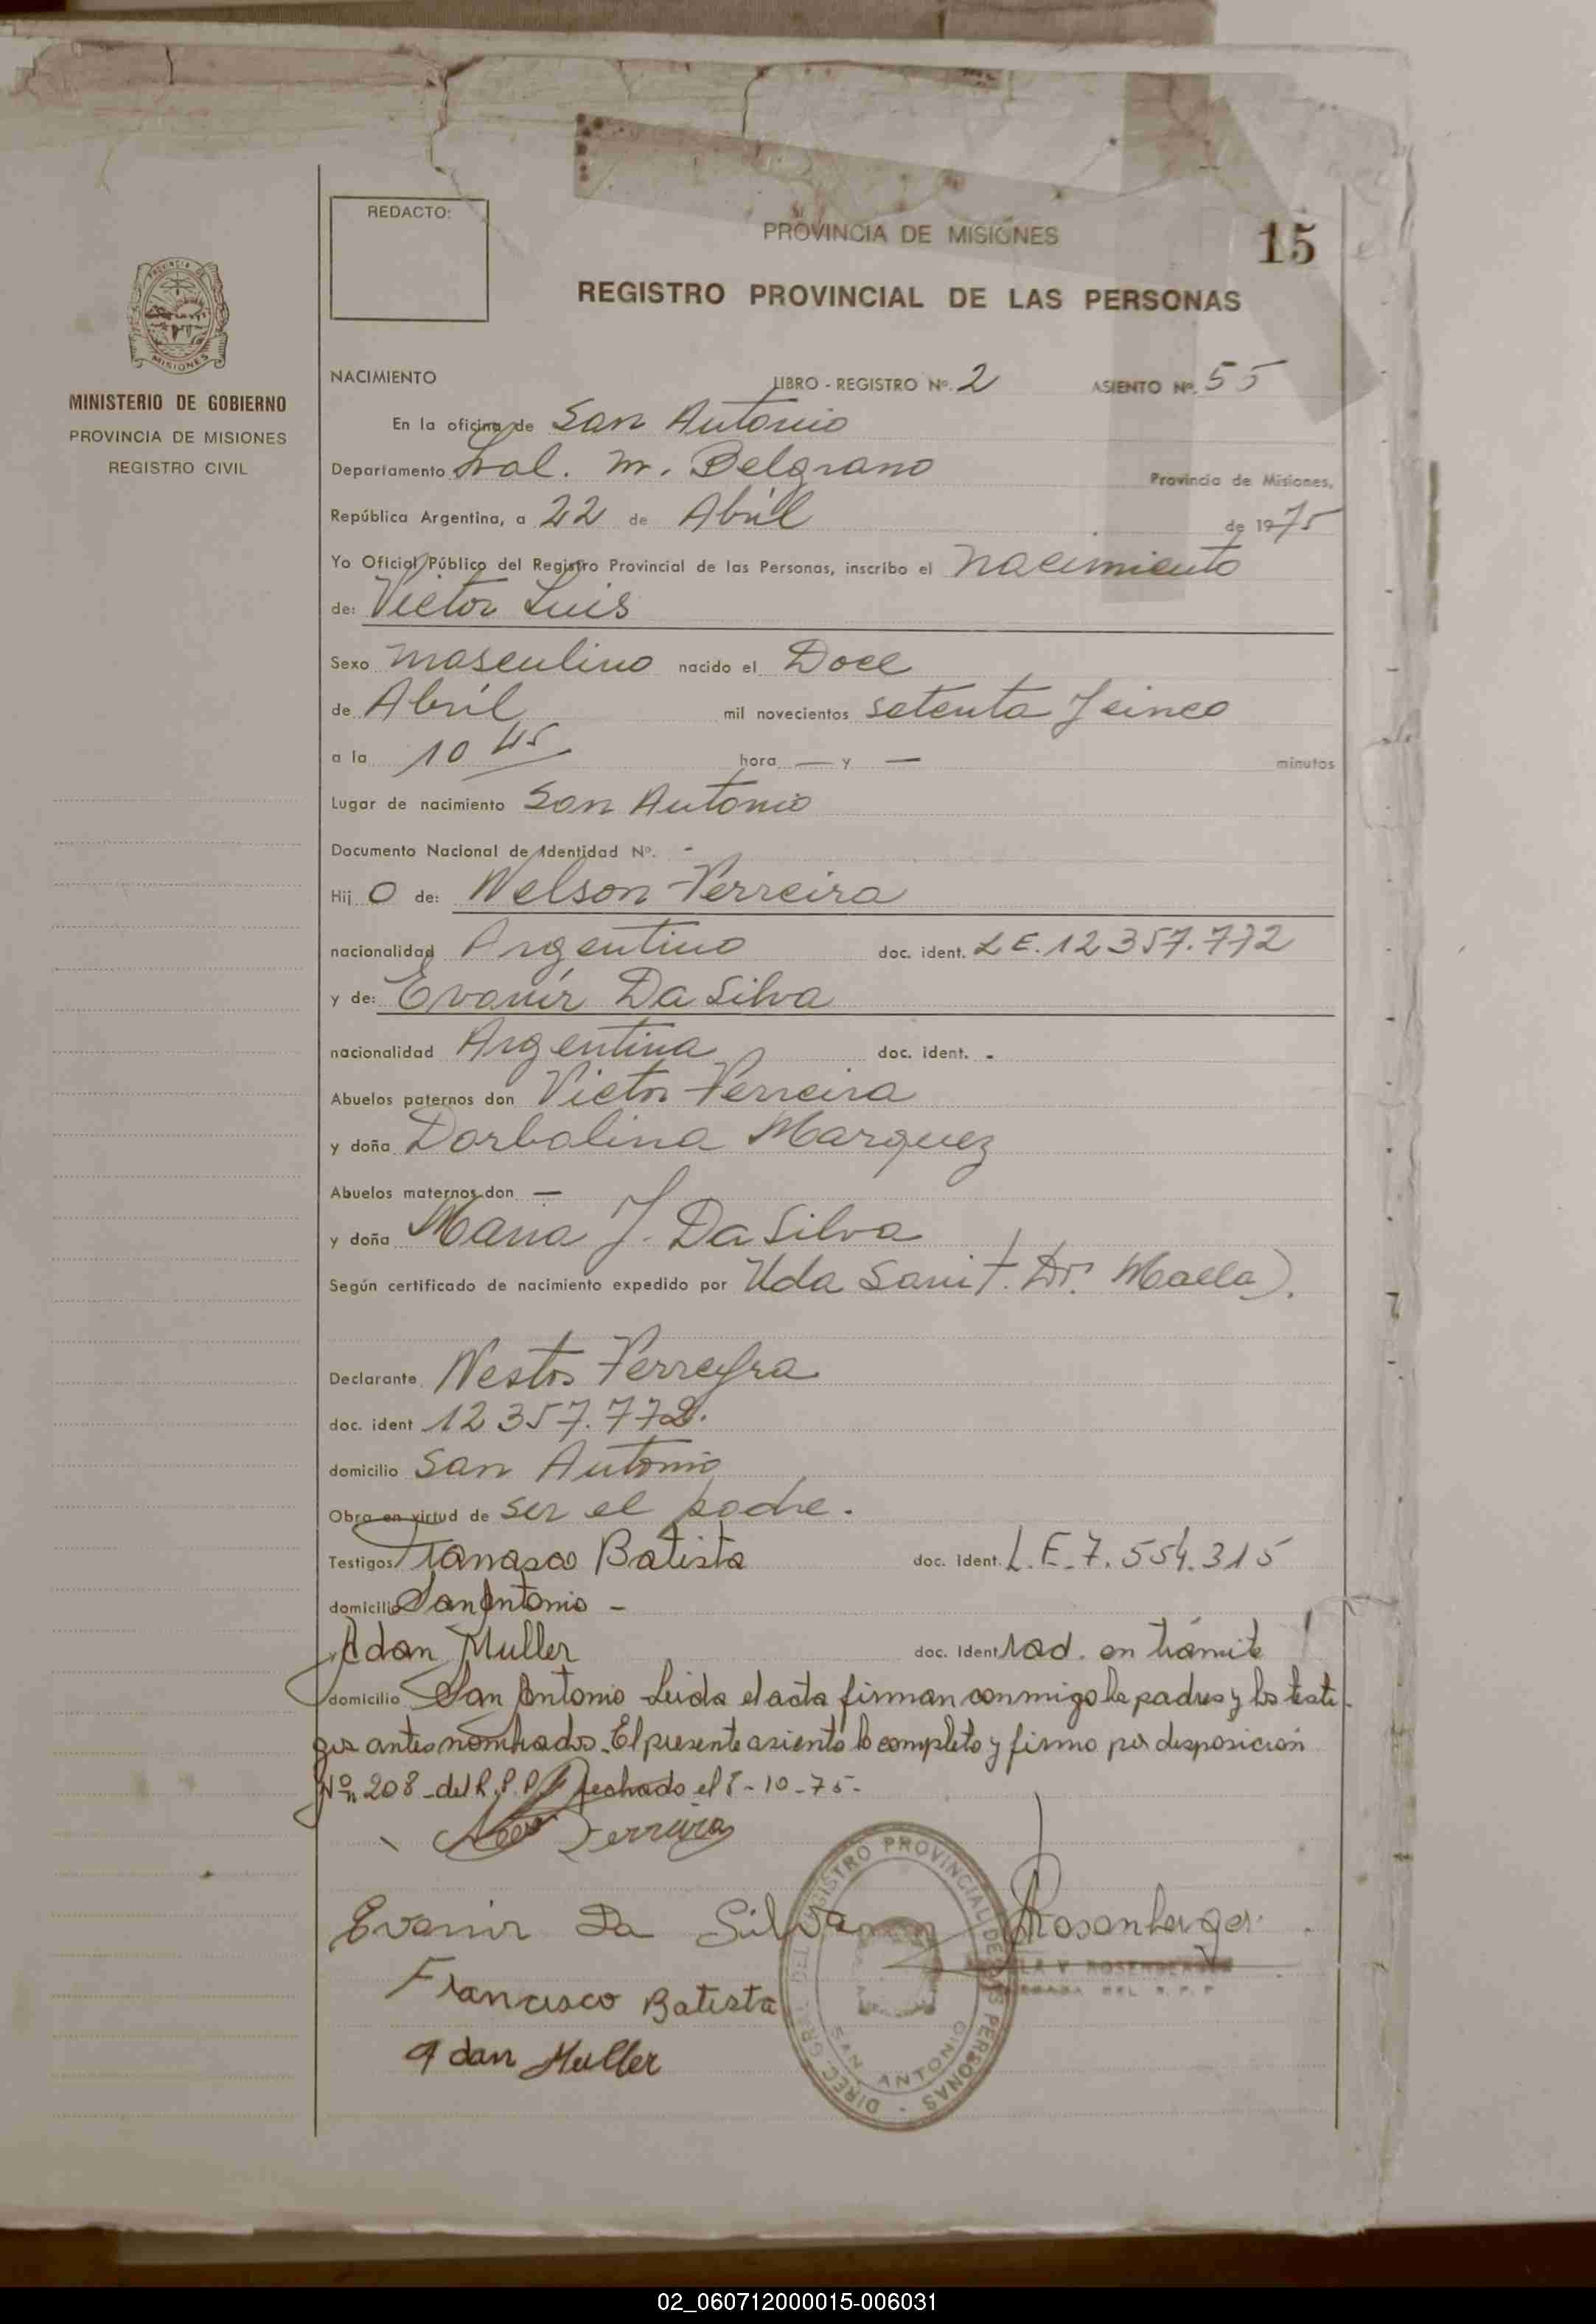 PROVINCIA DE MISIONES
15
REDACTO:
REGISTRO PROVINCIAL DE LAS PERSONAS
MISIONES
MINISTERIO DE GOBIERNO
PROVINCIA DE MISIONES
REGISTRO CIVIL
NACIMIENTO LIBRO - REGISTRO Nº. 2 ASIENTO Nº. 55
En la oficina de San Antonio
Departamento Gral. M. Belgrano Provincia de Misiones,
República Argentina, a 22 de Abril de 1975
Yo Oficial Público del Registro Provincial de las Personas, inscribo el nacimiento
de: Victor Luis
Sexo masculino nacido el Doce
de Abril mil novecientos setenta y cinco
a la 10 45 hora — y — minutos
Lugar de nacimiento San Antonio
Documento Nacional de Identidad Nº. -
Hij o de: Nelson Ferreira
nacionalidad Argentino doc. ident. L.E. 12357.772
y de: Evanir Da Silva
nacionalidad Argentina doc. ident. -
Abuelos paternos don Victor Ferreira
y doña Dorbalina Marquez
Abuelos maternos don —
y doña Maria J. Da Silva
Según certificado de nacimiento expedido por Uda Sanit. Dr.
Declarante Nestor Ferreyra
doc. ident 12357.772.
domicilio San Antonio
Obra en virtud de ser el padre.
Testigos Batista doc. Ident. L.E. 7.554.315
domicilio San Antonio -
Adan Muller doc. Ident rad. en trámite
domicilio San Antonio Leida el acta firman conmigo los padres y los testi-
gos antes nombrados. El presente asiento lo completo y firmo por disposición
Nº 208 - del R.P.P. fechado el 8-10-75-
Ferreira
Evanir Da Silva
Rosenberger
Francisco Batista
Adan Muller
DIREC. GRAL. DEL REGISTRO PROVINCIAL DE LAS PERSONAS -
SAN ANTONIO
02_060712000015-006031